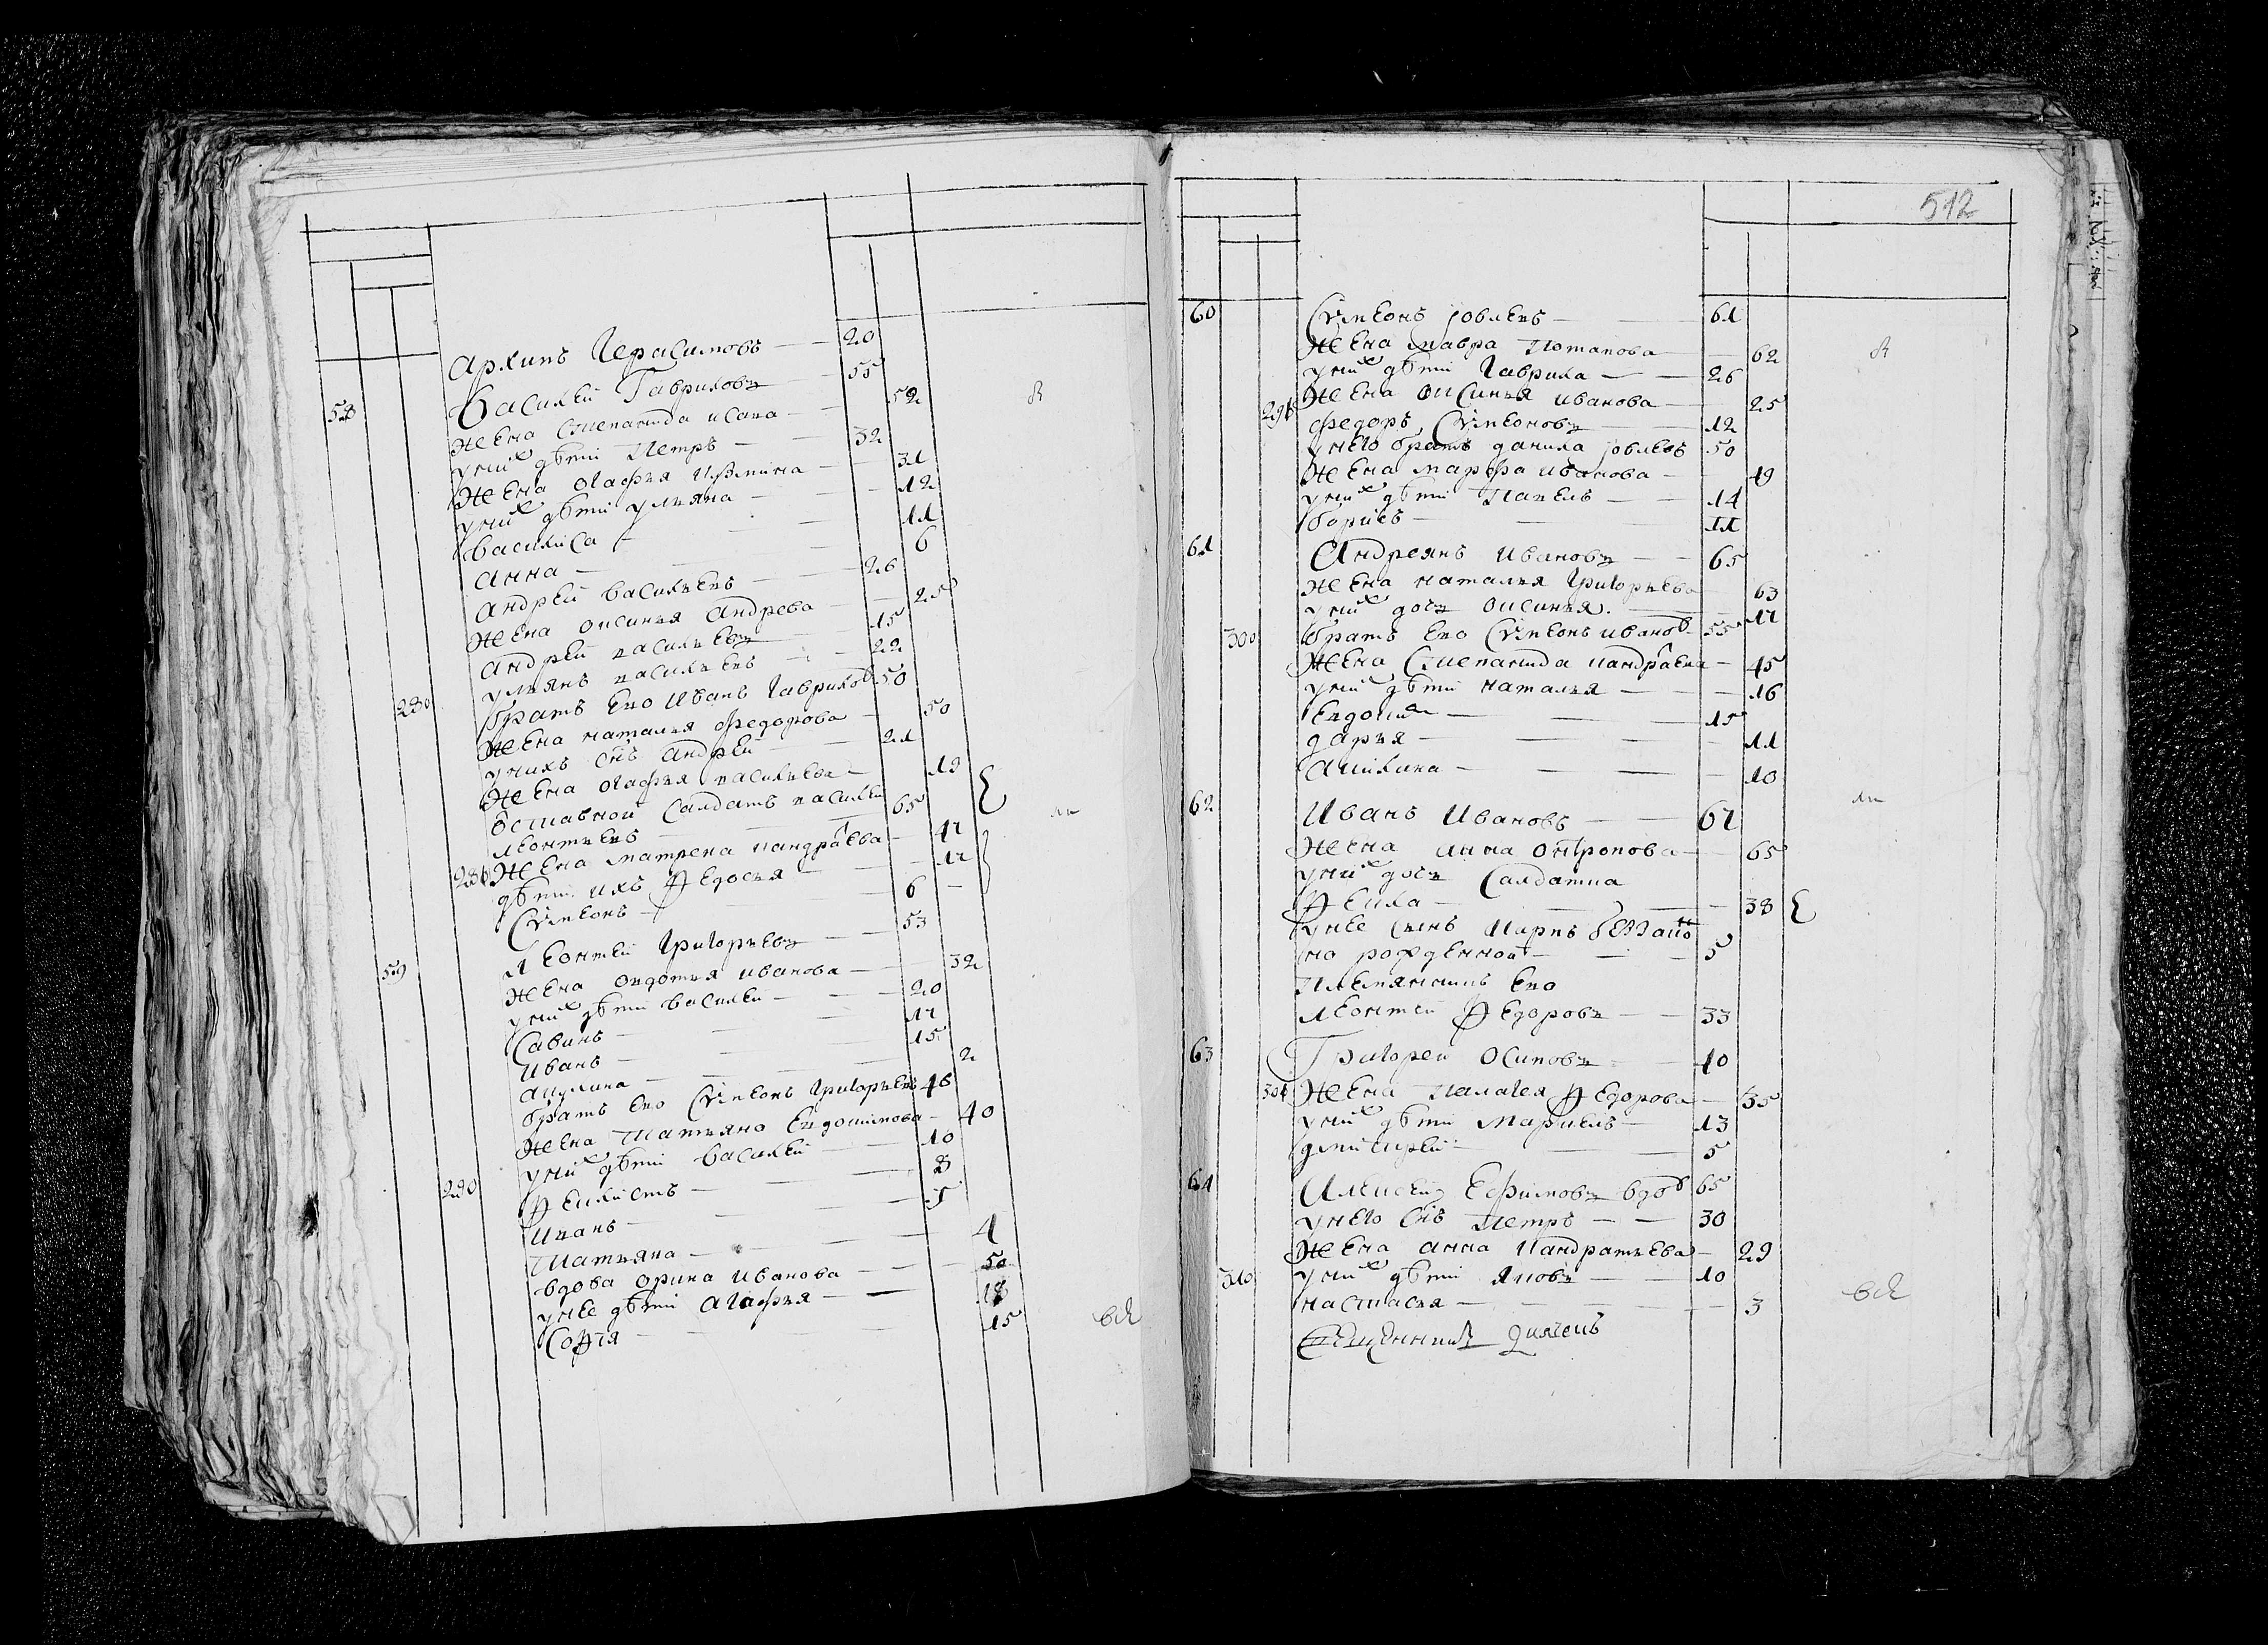 Архипъ Герасимовъ — 20
58 Василей Гавриловъ — 55
Жена Степанида исаева — 52
уних дѣти Петръ — 32
Жена огафья — 31
уних дѣти ульяна — 12
василиса — 11
анна — 6
андрей васильевъ — 26
Жена оксинья андреева — 25
андрей васильевъ — 15
ульянъ васильевъ — 22
280 братъ ево Иванъ Гавриловъ 50
Жена наталья федорова — 50
унихъ снъ андрей — 21
Жена огафья васильева — 19
отставной салдатъ василей
леонтьевъ — 65
286 Жена матрена кандратева — 47
дѣти ихъ Ѳедосья — 17
Сѵмеонъ — 6
59 Леонтей Григорьевъ — 53
Жена овдотья иванова — 32
уних дѣти василей — 20
Савинъ — 17
Иванъ — 15
акулина — 2
братъ ево Сѵмеонъ Григорьевъ 46
Жена Татьяна Евдокимова — 40
уних дѣти василей — 10
290 Ѳеклистъ — 8
Иванъ — 5
Татьяна — 4
вдова орина иванова — 50
унее дѣти агафья — 18
Соѳья — 15
512
60 Сѵмеонъ Іовлевъ — 61
Жена Мавра Потапова — 62
уних дѣти Гаврила — 26
Жена оксинья иванова — 25
федоръ Сѵмеоновъ — 12
унего братъ данила Іовлевъ 50
Жена марфа иванова — 49
уних дѣти Павелъ — 14
борисъ — 11
61 Андреянъ Ивановъ — 65
Жена наталья Григорьева 63
уних дочь оксинья — 17
300 братъ ево Сѵмеонъ иванов 55
Жена Степанида кандратева — 45
уних дѣти наталья — 16
Евдоким — 15
дарья — 11
акилина — 10
62 Иванъ Ивановъ — 67
Жена анна онтропова — 65
уних дочь Салдатка
Ѳекла — 38
унее сынъ Карпъ беззако
но рожденной — 5
Племянникъ ево
леонтей Ѳедоровъ — 33
63 Григорей Осиповъ — 40
Жена Палагея Ѳедорова — 35
уних дѣти Маркелъ — 13
дмитирей — 5
64 Алексей Ефимовъ вдов 65
унего снъ Петръ — 30
Жена анна Кандратьева — 29
310 уних дѣти Яковъ — 10
настасья — 3